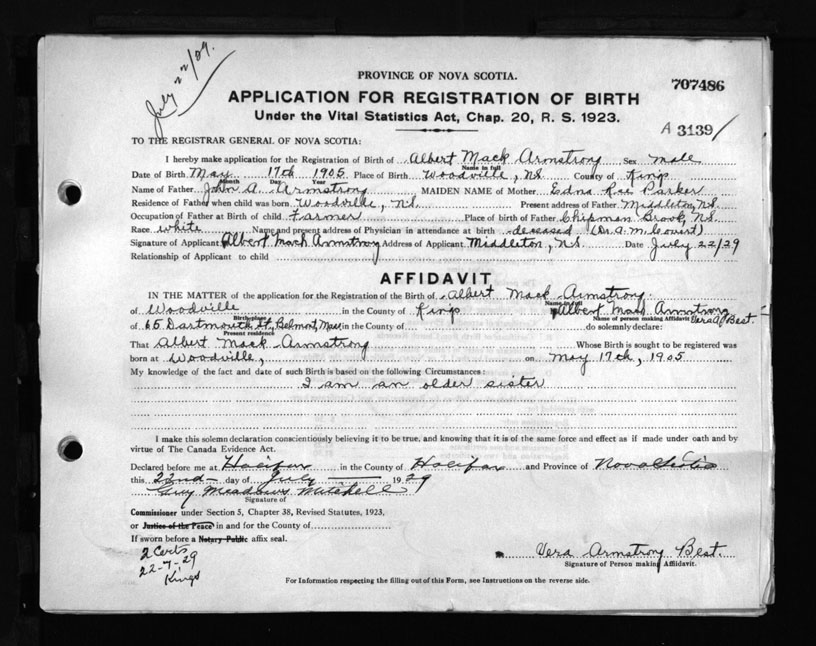 July 22/29.
PROVINCE OF NOVA SCOTIA.
707486
APPLICATION FOR REGISTRATION OF BIRTH
Under the Vital Statistics Act, Chap. 20, R. S. 1923.
A 3139/
TO THE REGISTRAR GENERAL OF NOVA SCOTIA:
I hereby make application for the Registration of Birth of Albert Mack Armstrong Sex male
Name in full
Date of Birth May 17th 1905 Place of Birth Woodville, N.S. County of Kings
Month Day Year
Name of Father John A. Armstrong MAIDEN NAME of Mother Edna Parker
Residence of Father when child was born Woodville, N.S. Present address of Father Middleton, N.S.
Occupation of Father at Birth of child Farmer Place of birth of Father Chipman Brook, N.S.
Race white Name and present address of Physician in attendance at birth deceased (Dr. A. M. Covert)
Signature of Applicant Albert Mack Armstrong Address of Applicant Middleton, N.S. Date July 22/29
Relationship of Applicant to child
AFFIDAVIT
IN THE MATTER of the application for the Registration of the Birth of Albert Mack Armstrong
Name in full
of Woodville in the County of Kings Albert Mack Armstrong
Birthplace Name of person making Affidavit
of 65 Dartmouth St, Belmont, Mass in the County of Vera A. Best do solemnly declare:
Present residence
That Albert Mack Armstrong Whose Birth is sought to be registered was
born at Woodville, on May 17th, 1905
My knowledge of the fact and date of such Birth is based on the following Circumstances:
I am an older sister
I make this solemn declaration conscientiously believing it to be true, and knowing that it is of the same force and effect as if made under oath and by
virtue of The Canada Evidence Act.
Declared before me at Halifax in the County of Halifax and Province of Nova Scotia
this 22nd day of July 1929
Guy Meadows Mitchell
Signature of
Commissioner under Section 5, Chapter 38, Revised Statutes, 1923,
or Justice of the Peace in and for the County of
If sworn before a Notary Public affix seal.
2 Certs
22-7-29
Kings
Vera Armstrong Best.
Signature of Person making Affidavit.
For Information respecting the filling out of this Form, see Instructions on the reverse side.